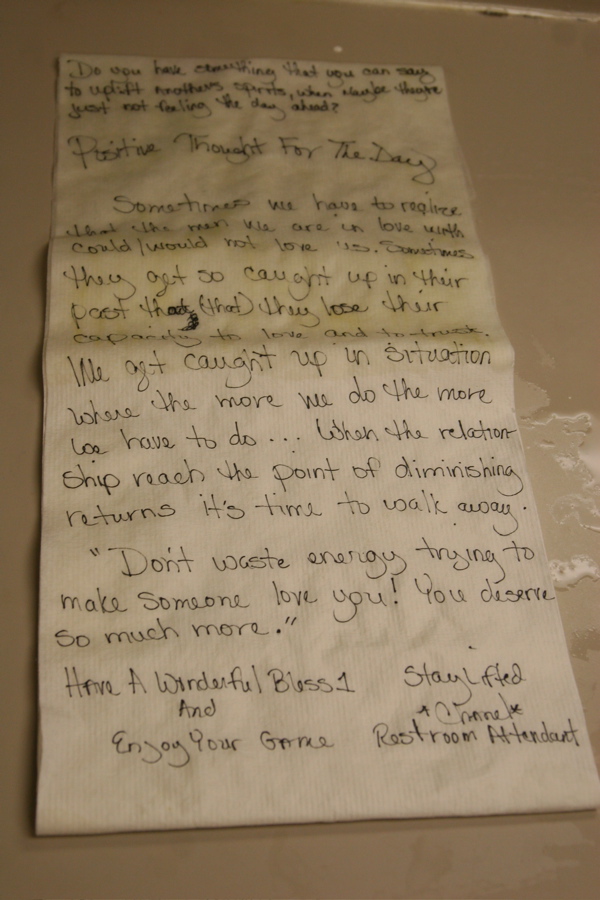 Do you have something that you can say
to uplift anothers spirits, when maybe theyre
just not feeling the day ahead?
Positive Thought For The Day
Sometimes we have to realize
that the men we are in love with
could/would not love us. Sometimes
they get so caught up in their
past (that) they lose their
capacity to love and to trust.
We get caught up in situation
where the more we do the more
we have to do ... When the relation-
ship reach the point of diminishing
returns it's time to walk away.
"Don't waste energy trying to
make someone love you! You deserve
so much more."
Have A Wonderful Bless 1
And
Enjoy Your Game
Stay Lifted
Restroom Attendant